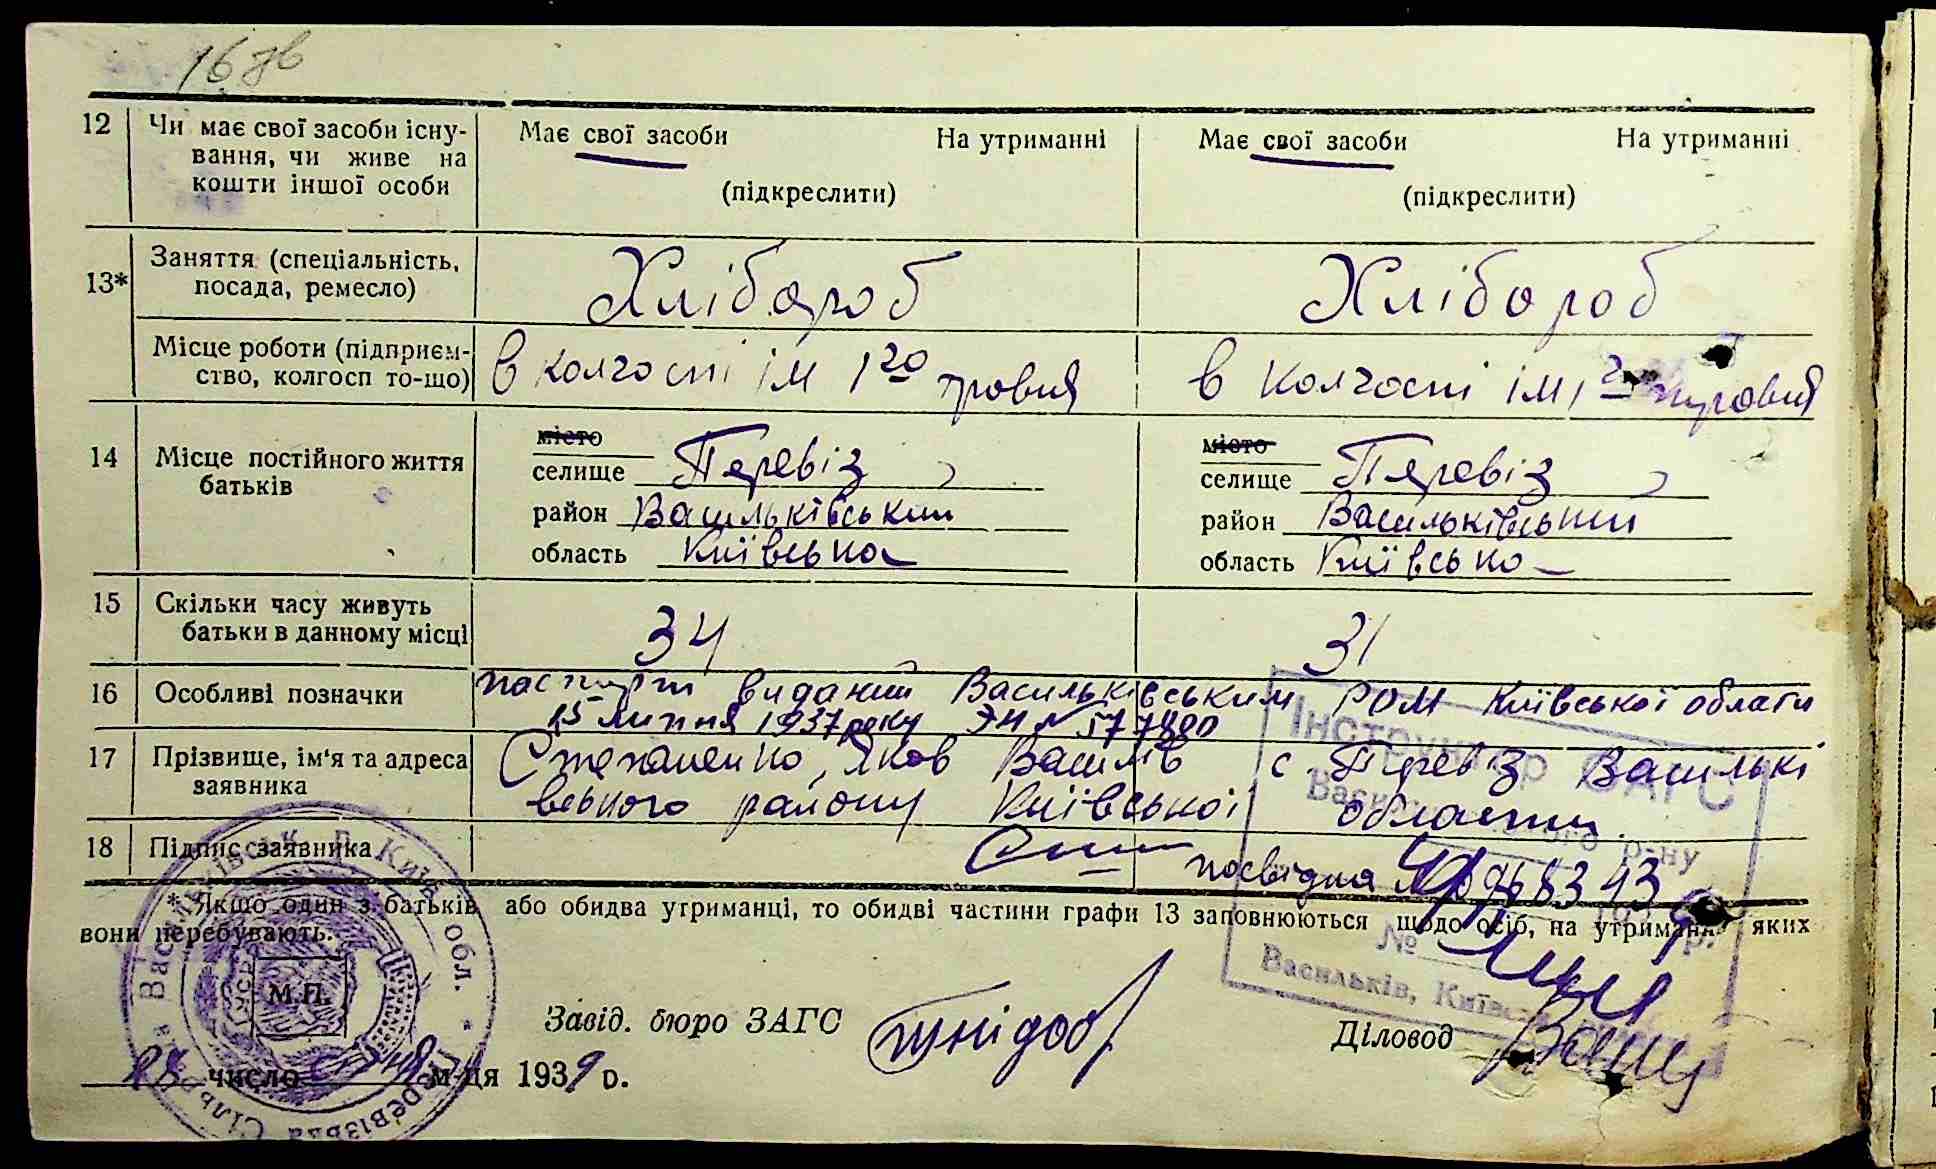 16 зв
12 Чи має свої засоби існу- Має свої засоби На утриманні Має свої засоби На утриманні
вання, чи живе на
кошти іншої особи (підкреслити) (підкреслити)
13* Заняття (спеціальність, Хлібороб Хлібороб
посада, ремесло)
Місце роботи (підприєм- в колгоспі ім 1го травня в колгоспі ім 1го травня
ство, колгосп то-що)
14 Місце постійного життя місто місто
батьків селище Перевіз селище Перевіз
район Васильківський район Васильківський
область Київська область Київська
15 Скільки часу живуть 34 31
батьки в данному місці
16 Особливі позначки паспорт виданий Васильківським РОМ Київської області
15 липня 1937 року ЭН № 577880
17 Прізвище, ім'я та адреса Степаненко, Яков Василів с Перевіз Василькі
заявника вського району Київської області
18 Підпис заявника
посвідка
* Якщо один з батьків або обидва утриманці, то обидві частини графи 13 заповнюються щодо осіб, на утриманні яких
вони перебувають.
М.П.
Завід. бюро ЗАГС Діловод
число м-ця 1939 р.
Васильківськ. р. Київ. обл.
Інструктор ЗАГС
Васильківського р-ну
193 р.
№
Васильків, Київськ